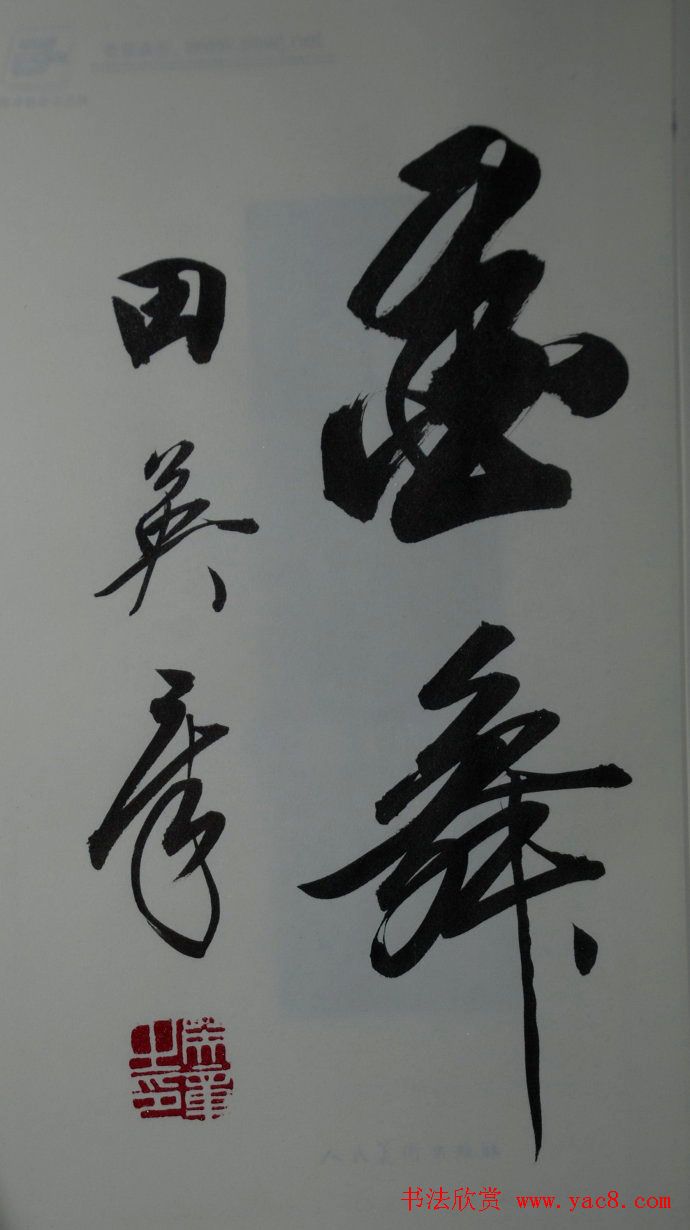 墨舞
田英章
书法欣赏 www.yac8.com